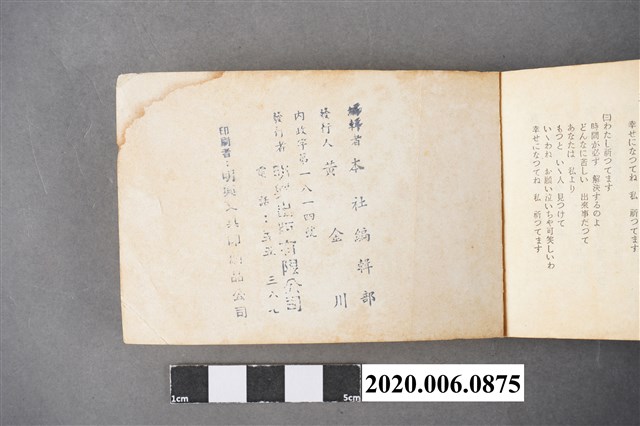 幸せになつてね 私 祈つてます
四わたし祈つてます
時間が必ず 解決するのよ
どんなに苦しい 出來事だつて
あなたは 私より
もつと いゝ人 見つけて
いゝわね お願い泣いちや可笑しいわ
幸せになつてね 私 祈つてます
編輯者 本社編輯部
發行人 黃金川
內政字第一八一四號
發行者 明興出版有限公司
電話:五五 三六
印刷者:明興 公司
1cm 5cm
2020.006.0875